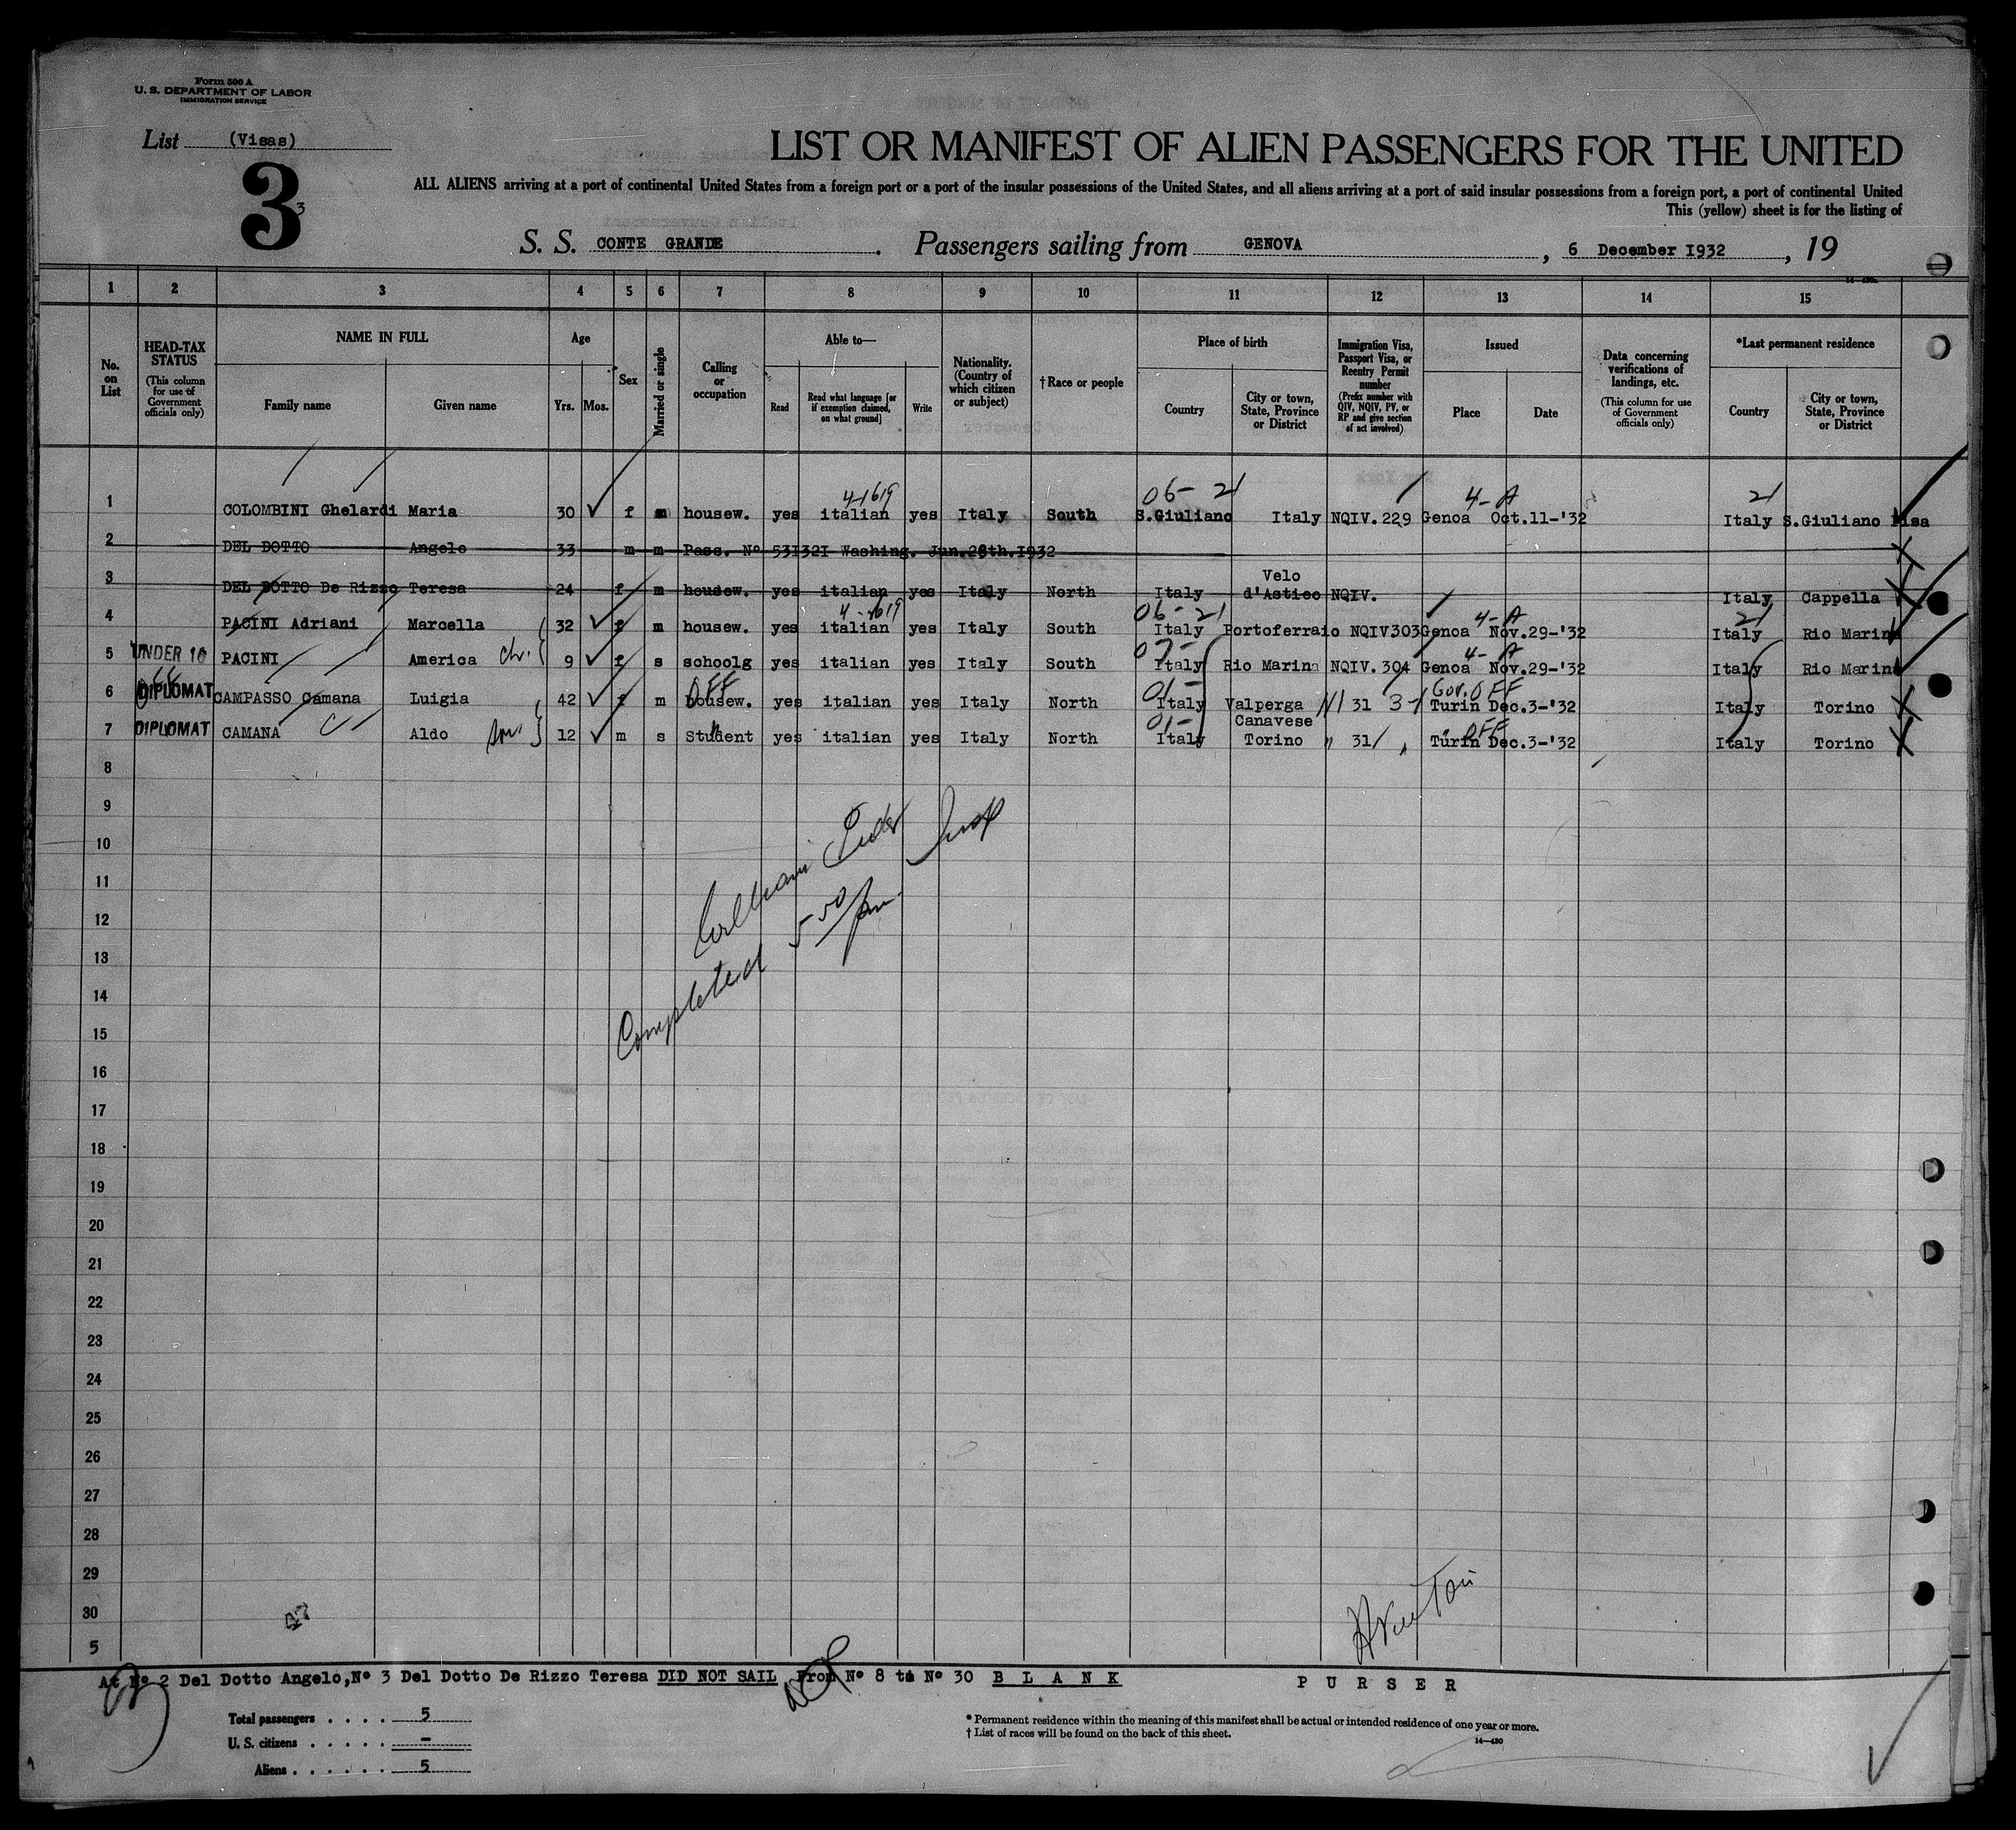 Form 500 A
U. S. DEPARTMENT OF LABOR
IMMIGRATION SERVICE
List (Visas)
3
3
LIST OR MANIFEST OF ALIEN PASSENGERS FOR THE UNITED
ALL ALIENS arriving at a port of continental United States from a foreign port or a port of the insular possessions of the United States, and all aliens arriving at a port of said insular possessions from a foreign port, a port of continental United
This (yellow) sheet is for the listing of
S. S. CONTE GRANDE . Passengers sailing from GENOVA , 6 December 1932 , 19
1 2 3 4 5 6 7 8 9 10 11 12 13 14 15
No. on List
HEAD-TAX STATUS (This column for use of Government officials only)
NAME IN FULL
Family name Given name
Age
Yrs. Mos.
Sex
Married or single
Calling or occupation
Able to—
Read
Read what language [or if exemption claimed, on what ground]
Write
Nationality. (Country of which citizen or subject)
†Race or people
Place of birth
Country
City or town, State, Province or District
Immigration Visa, Passport Visa, or Reentry Permit number (Prefix number with QIV, NQIV, PV, or RP and give section of act involved)
Issued
Place Date
Data concerning verifications of landings, etc. (This column for use of Government officials only)
*Last permanent residence
Country
City or town, State, Province or District
4-1619 06- 21 4-A 21
1 COLOMBINI Ghelardi Maria 30 f m housew. yes italian yes Italy South S.Giuliano Italy NQIV.229 Genoa Oct.11-'32 Italy S.Giuliano Pisa
2 DEL DOTTO Angelo 33 m m Pass. Nº 531321 Washing. Jun.28th.1932
3 DEL DOTTO De Rizzo Teresa 24 f m housew. yes italian yes Italy North Italy Velo d'Astico NQIV. Italy Cappella
4-1619 06- 21 4-A 21
4 PACINI Adriani Marcella 32 f m housew. yes italian yes Italy South Italy Portoferraio NQIV303 Genoa Nov.29-'32 Italy Rio Marina
07- 4-A
5 UNDER 16 PACINI America ch. 9 f s schoolg yes italian yes Italy South Italy Rio Marina NQIV.304 Genoa Nov.29-'32 Italy Rio Marina
OFF 01- Gov. OFF
6 DIPLOMAT CAMPASSO Camana Luigia 42 f m housew. yes italian yes Italy North Italy Valperga Canavese 31 3-1 Turin Dec.3-'32 Italy Torino
01- OFF
7 DIPLOMAT CAMANA Aldo son 12 m s Student yes italian yes Italy North Italy Torino " 31 Turin Dec.3-'32 Italy Torino
8
9
10
11
12
13
14
15
16
17
18
19
20
21
22
23
24
25
26
27
28
29
30
5
Completed 5 50 pm
47
At Nº 2 Del Dotto Angelo, Nº 3 Del Dotto De Rizzo Teresa DID NOT SAIL From Nº 8 to Nº 30 B L A N K
P U R S E R
Total passengers . . . . 5
U. S. citizens . . . . . –
Aliens . . . . . . 5
* Permanent residence within the meaning of this manifest shall be actual or intended residence of one year or more.
† List of races will be found on the back of this sheet.
14—430